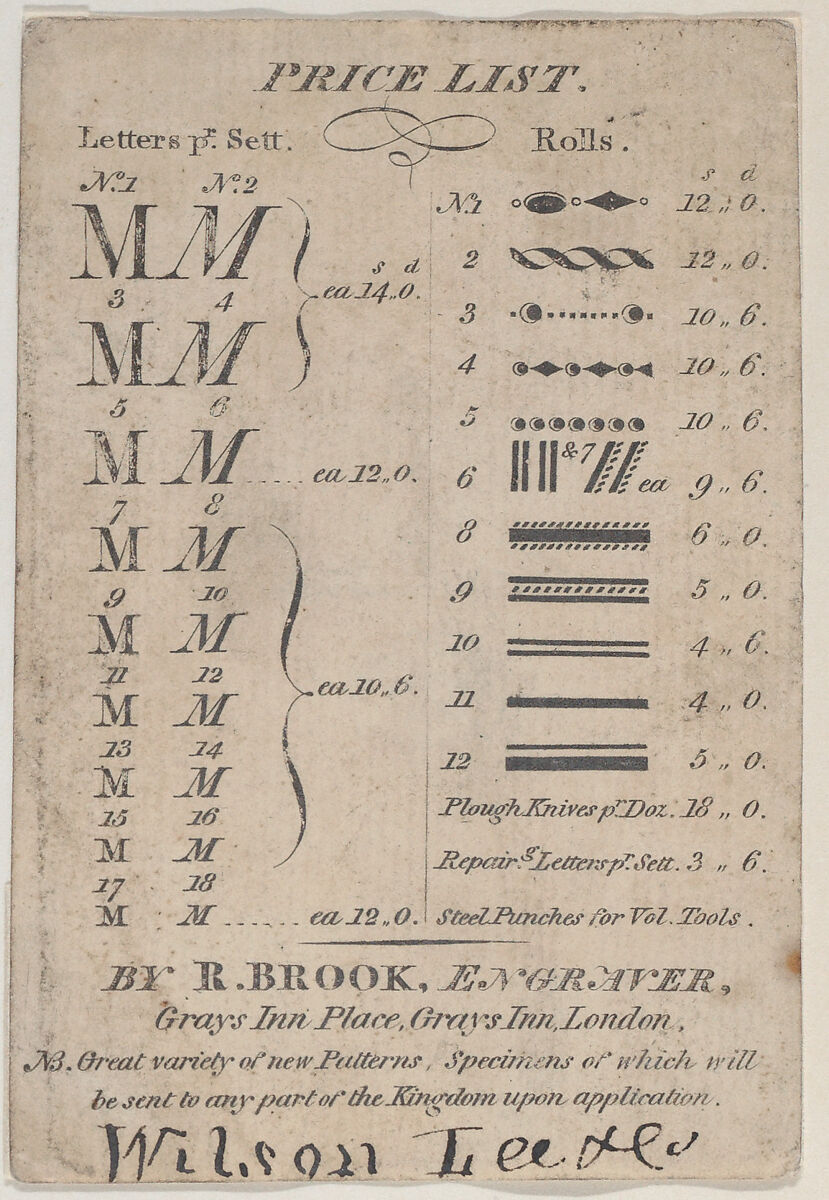 PRICE LIST.
Letters pr. Sett.
No. 1 No. 2
M M
3 4
s d
ea 14 „ 0.
M M
5 6
M M ..... ea 12 „ 0.
7 8
M M
9 10
M M
11 12
ea 10 „ 6.
M M
13 14
M M
15 16
M M
17 18
M M ...... ea 12 „ 0.
Rolls.
s d
No. 1 12 „ 0.
2 12 „ 0.
3 10 „ 6.
4 10 „ 6.
5 10 „ 6.
6 & 7 ea 9 „ 6.
8 6 „ 0.
9 5 „ 0.
10 4 „ 6.
11 4 „ 0.
12 5 „ 0.
Plough Knives pr. Doz. 18 „ 0.
Repair.g Letters pr. Sett. 3 „ 6.
Steel Punches for Vol. Tools.
BY R. BROOK, ENGRAVER,
Grays Inn Place, Grays Inn, London,
NB. Great variety of new Patterns, Specimens of which will
be sent to any part of the Kingdom upon application.
Wilson